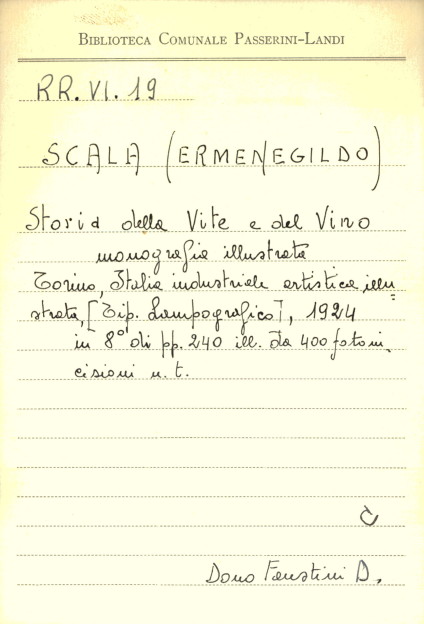 BIBLIOTECA COMUNALE PASSERINI-LANDI
RR. VI. 19
SCALA (ERMENEGILDO)
Storia della Vite e del Vino
monografia illustrata
Torino, Italia industriale artistica illu=
strata, [Tip. Lampografico], 1924
in 8° di pp. 240 ill. da 400 fotoin_
cisioni n. t.
C
Dono Faustini D.